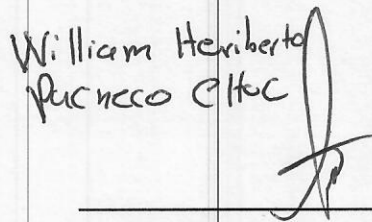 William Heriberto
Pacheco CHoC